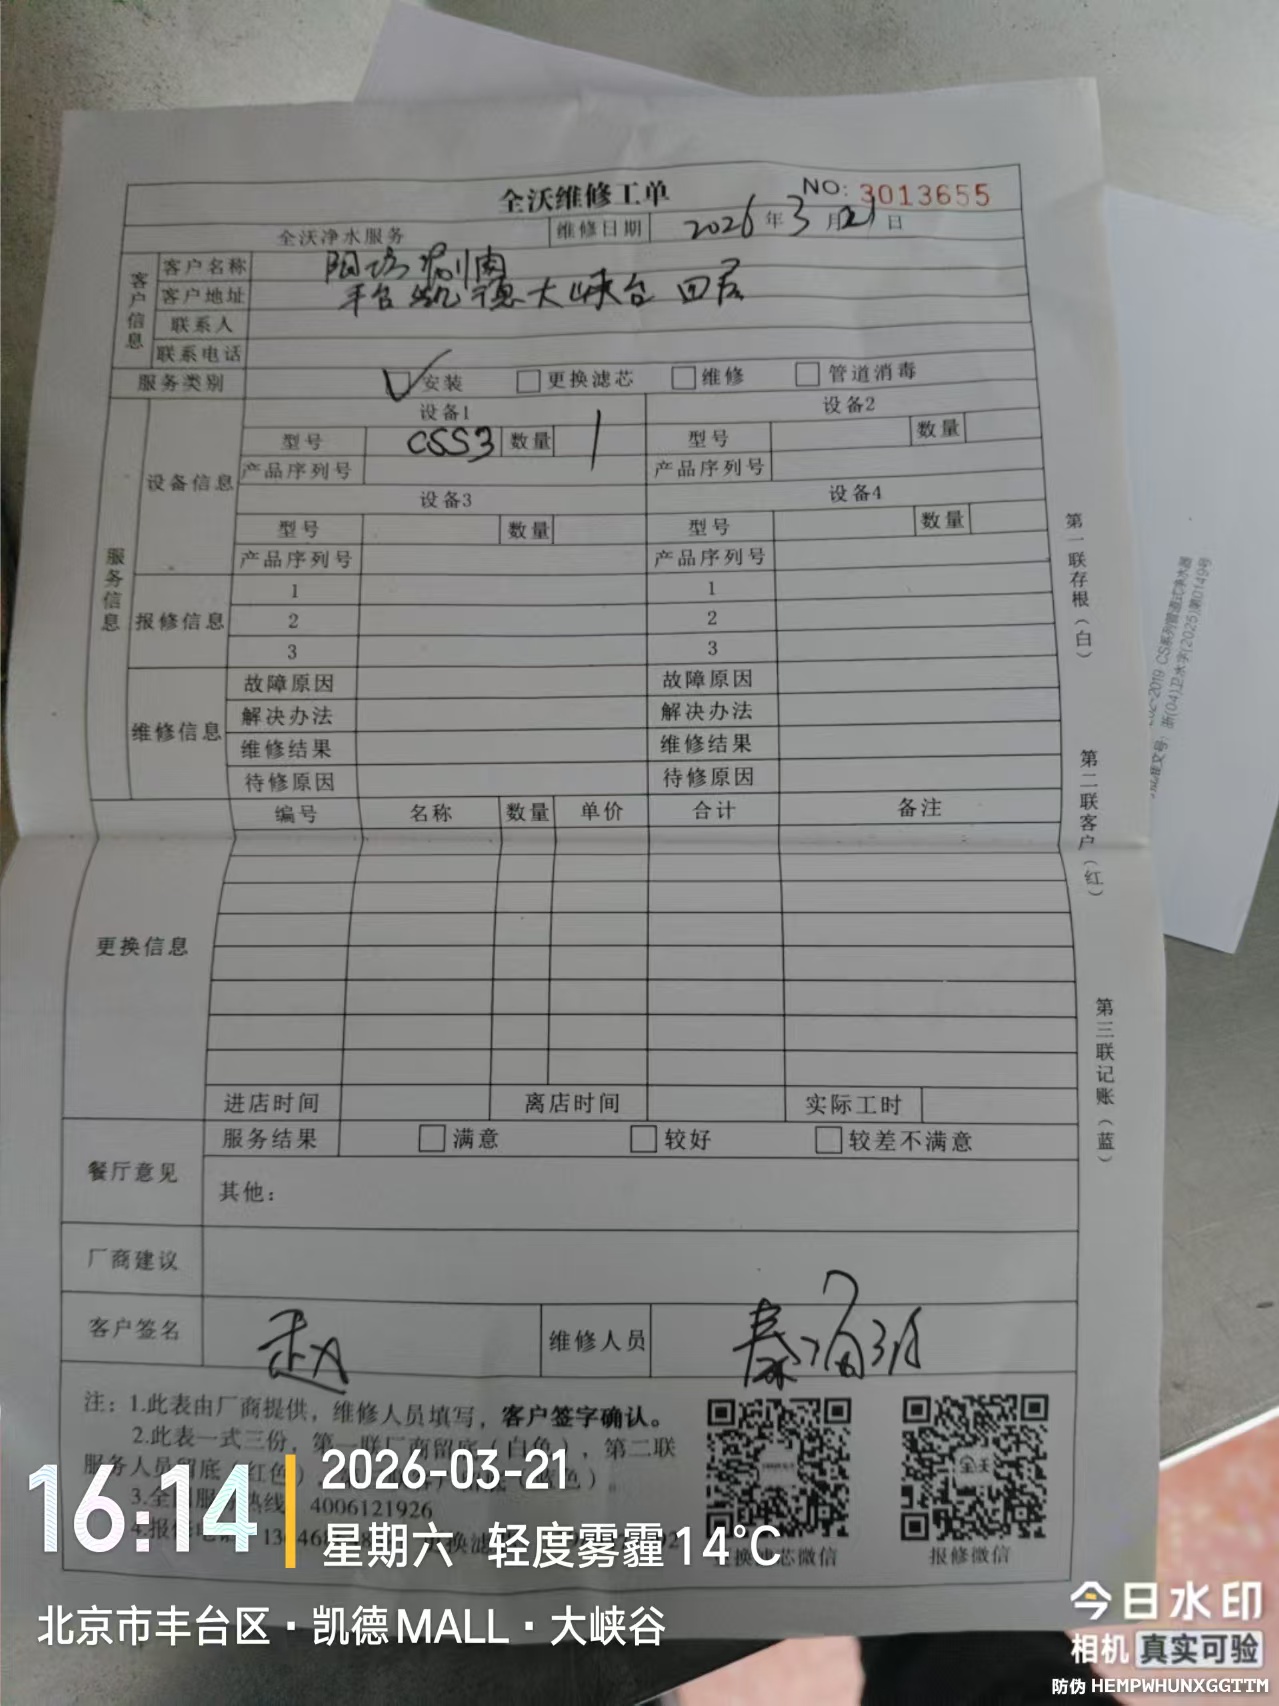 全沃维修工单 NO: 3013655
全沃净水服务 维修日期 2026 年 3 月 21 日
客户信息
客户名称 阳坊涮肉
客户地址 丰台凯德大峡谷 四层
联系人
联系电话
服务类别 安装 更换滤芯 维修 管道消毒
服务信息
设备信息
设备1 设备2
型号 CSS3 数量 1 型号 数量
产品序列号 产品序列号
设备3 设备4
型号 数量 型号 数量
产品序列号 产品序列号
报修信息
1 1
2 2
3 3
维修信息
故障原因 故障原因
解决办法 解决办法
维修结果 维修结果
待修原因 待修原因
编号 名称 数量 单价 合计 备注
更换信息
进店时间 离店时间 实际工时
餐厅意见
服务结果 满意 较好 较差不满意
其他：
厂商建议
客户签名 赵 维修人员 秦
注：1.此表由厂商提供，维修人员填写，客户签字确认。
2.此表一式三份，第一联厂商留底（白色），第二联
服务人员留底（红色）
3.全国服务热线 4006121926
4.报修
换滤芯微信 报修微信
第一联存根（白）
第二联客户（红）
第三联记账（蓝）
2019 CS系列管道式净水器
浙(04)卫水字(2025)第0149号
16:14
2026-03-21
星期六 轻度雾霾 14°C
北京市丰台区·凯德MALL·大峡谷
今日水印
相机 真实可验
防伪 HEMPWHUNXGGTTM